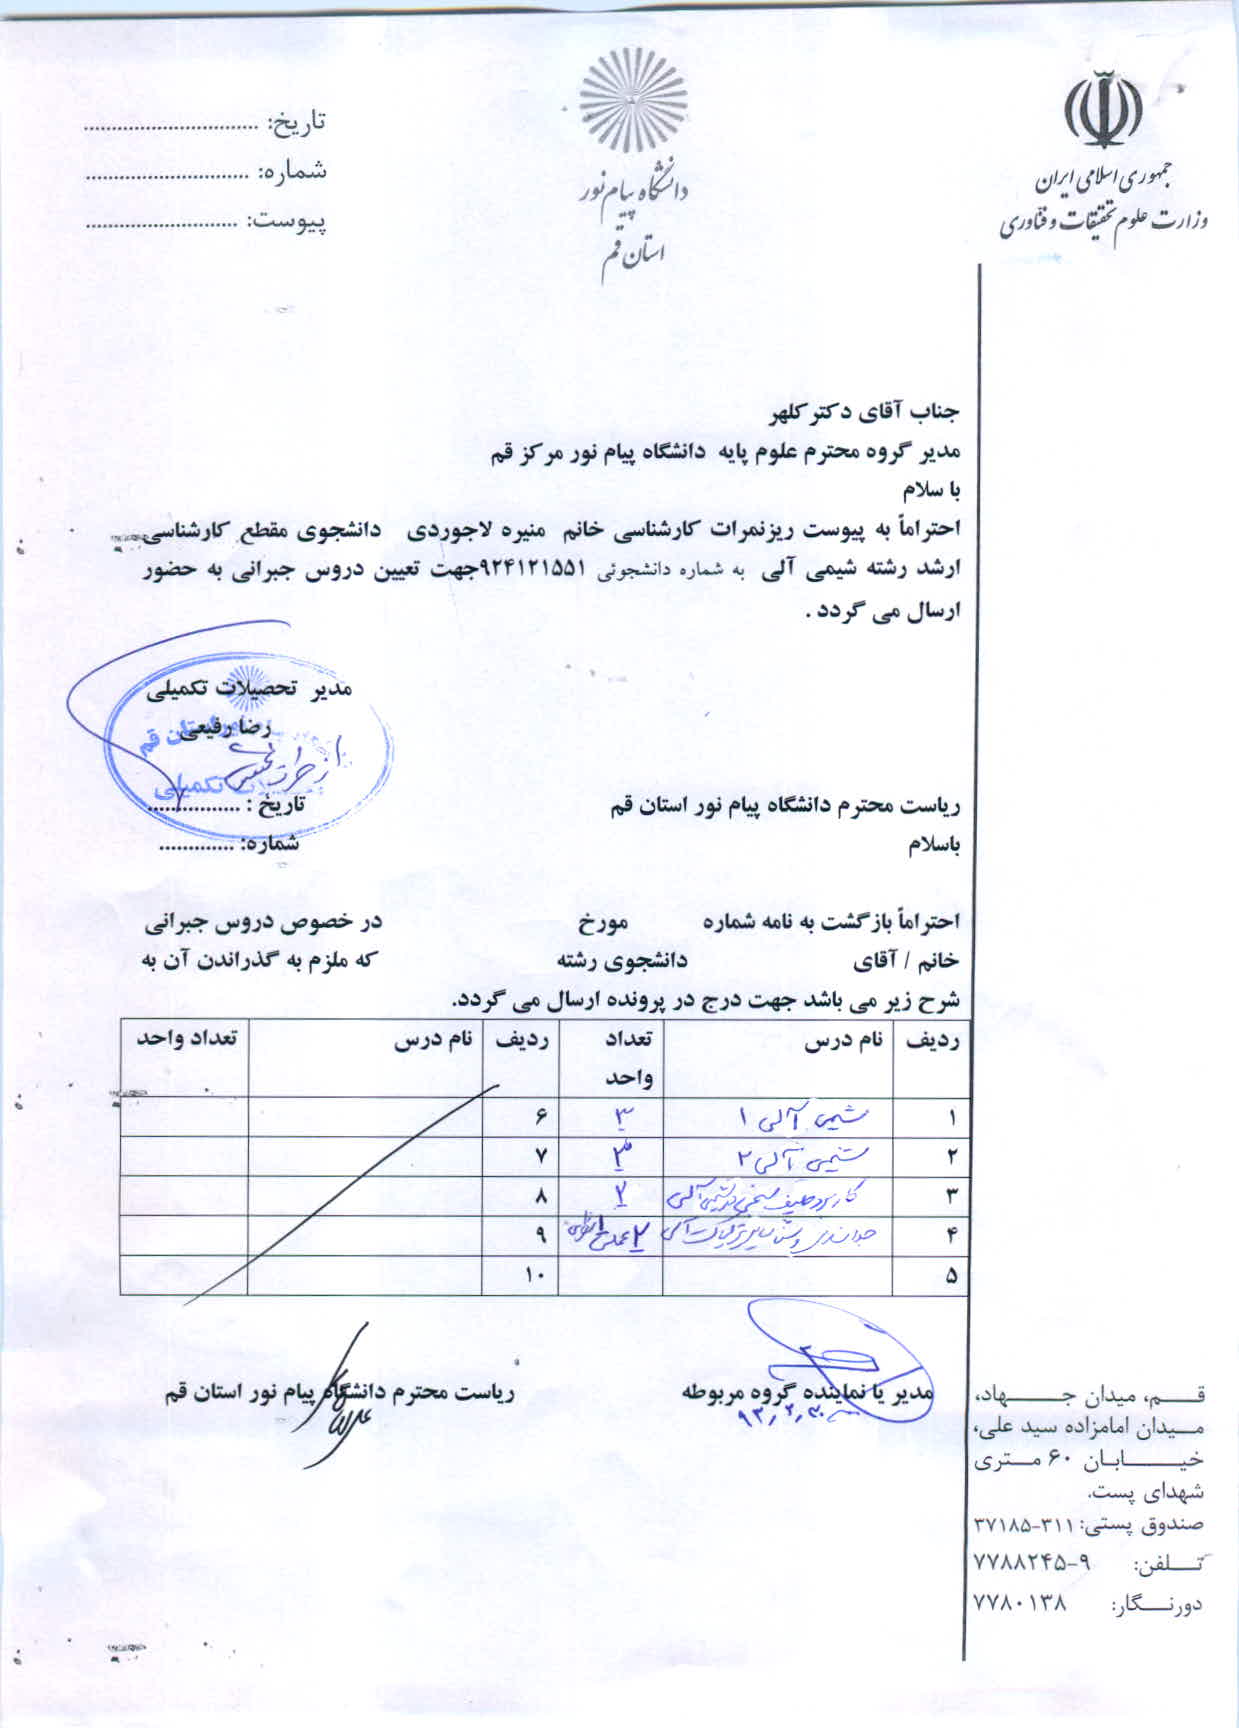 جمهوری اسلامی ایران
وزارت علوم تحقیقات و فناوری
دانشگاه پیام نور
استان قم
تاریخ: ................................
شماره: ..............................
پیوست: ............................
جناب آقای دکتر کلهر
مدیر گروه محترم علوم پایه دانشگاه پیام نور مرکز قم
با سلام
احتراماً به پیوست ریزنمرات کارشناسی خانم منیره لاجوردی دانشجوی مقطع کارشناسی
ارشد رشته شیمی آلی به شماره دانشجوئی ۹۲۴۱۲۱۵۵۱جهت تعیین دروس جبرانی به حضور
ارسال می گردد .
مدیر تحصیلات تکمیلی
رضا رفیعی
استان قم
تحصیلات تکمیلی
ریاست محترم دانشگاه پیام نور استان قم
تاریخ : ................
باسلام
شماره: .............
احتراماً بازگشت به نامه شماره مورخ در خصوص دروس جبرانی
خانم / آقای دانشجوی رشته که ملزم به گذراندن آن به
شرح زیر می باشد جهت درج در پرونده ارسال می گردد.
ردیف نام درس تعداد واحد ردیف نام درس تعداد واحد
۱ شیمی آلی ۱ ۳ ۶
۲ شیمی آلی ۲ ۳ ۷
۳ کاربرد طیف سنجی در شیمی آلی ۲ ۸
۴ جداسازی و شناسایی ترکیبات آلی ۲ ۹
۵ ۱۰
مدیر یا نماینده گروه مربوطه
ریاست محترم دانشگاه پیام نور استان قم
قم، میدان جهاد،
میدان امامزاده سید علی،
خیابان ۶۰ متری
شهدای پست.
صندوق پستی: ۳۱۱-۳۷۱۸۵
تلفن: ۹-۷۷۸۸۲۴۵
دورنگار: ۷۷۸۰۱۳۸